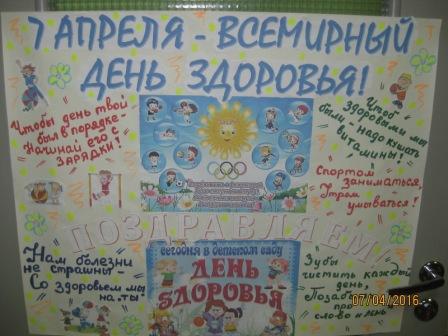 7 АПРЕЛЯ - ВСЕМИРНЫЙ
ДЕНЬ ЗДОРОВЬЯ!
Чтобы день твой
был в порядке-
Начинай его с
ЗАРЯДКИ!
Чтоб
здоровыми мы
были - надо кушать
витамины!
Спортом
заниматься,
Утром
умываться!
ПОЗДРАВЛЯЕМ
Нам болезни
не страшны -
Со здоровьем мы
на „ты"
СЕГОДНЯ В ДЕТСКОМ САДУ
ДЕНЬ
ЗДОРОВЬЯ
Зубы
чистить каждый
день,
Позабыв про
слово «лень»
07/04/2016